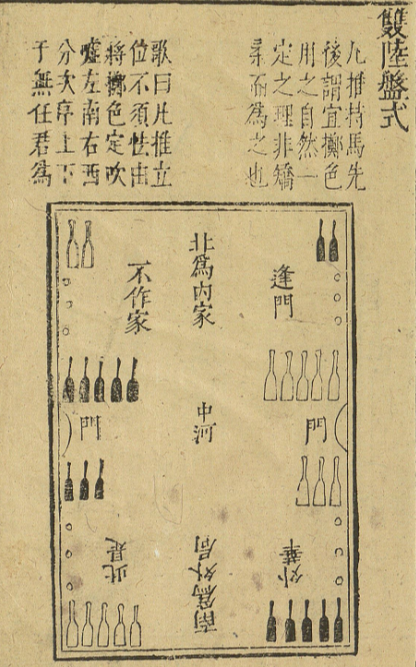 雙陸盤式
凡推持馬先
後謂宜擲色
用之自然一
定之理非矯
柔而爲之也
歌曰凡推立
位不須怯由
將擲色定吹
噓左南右西
分次序上下
于無任君爲
逢門
北爲內家
不作家
門
中河
門
外華
南爲外局
此是